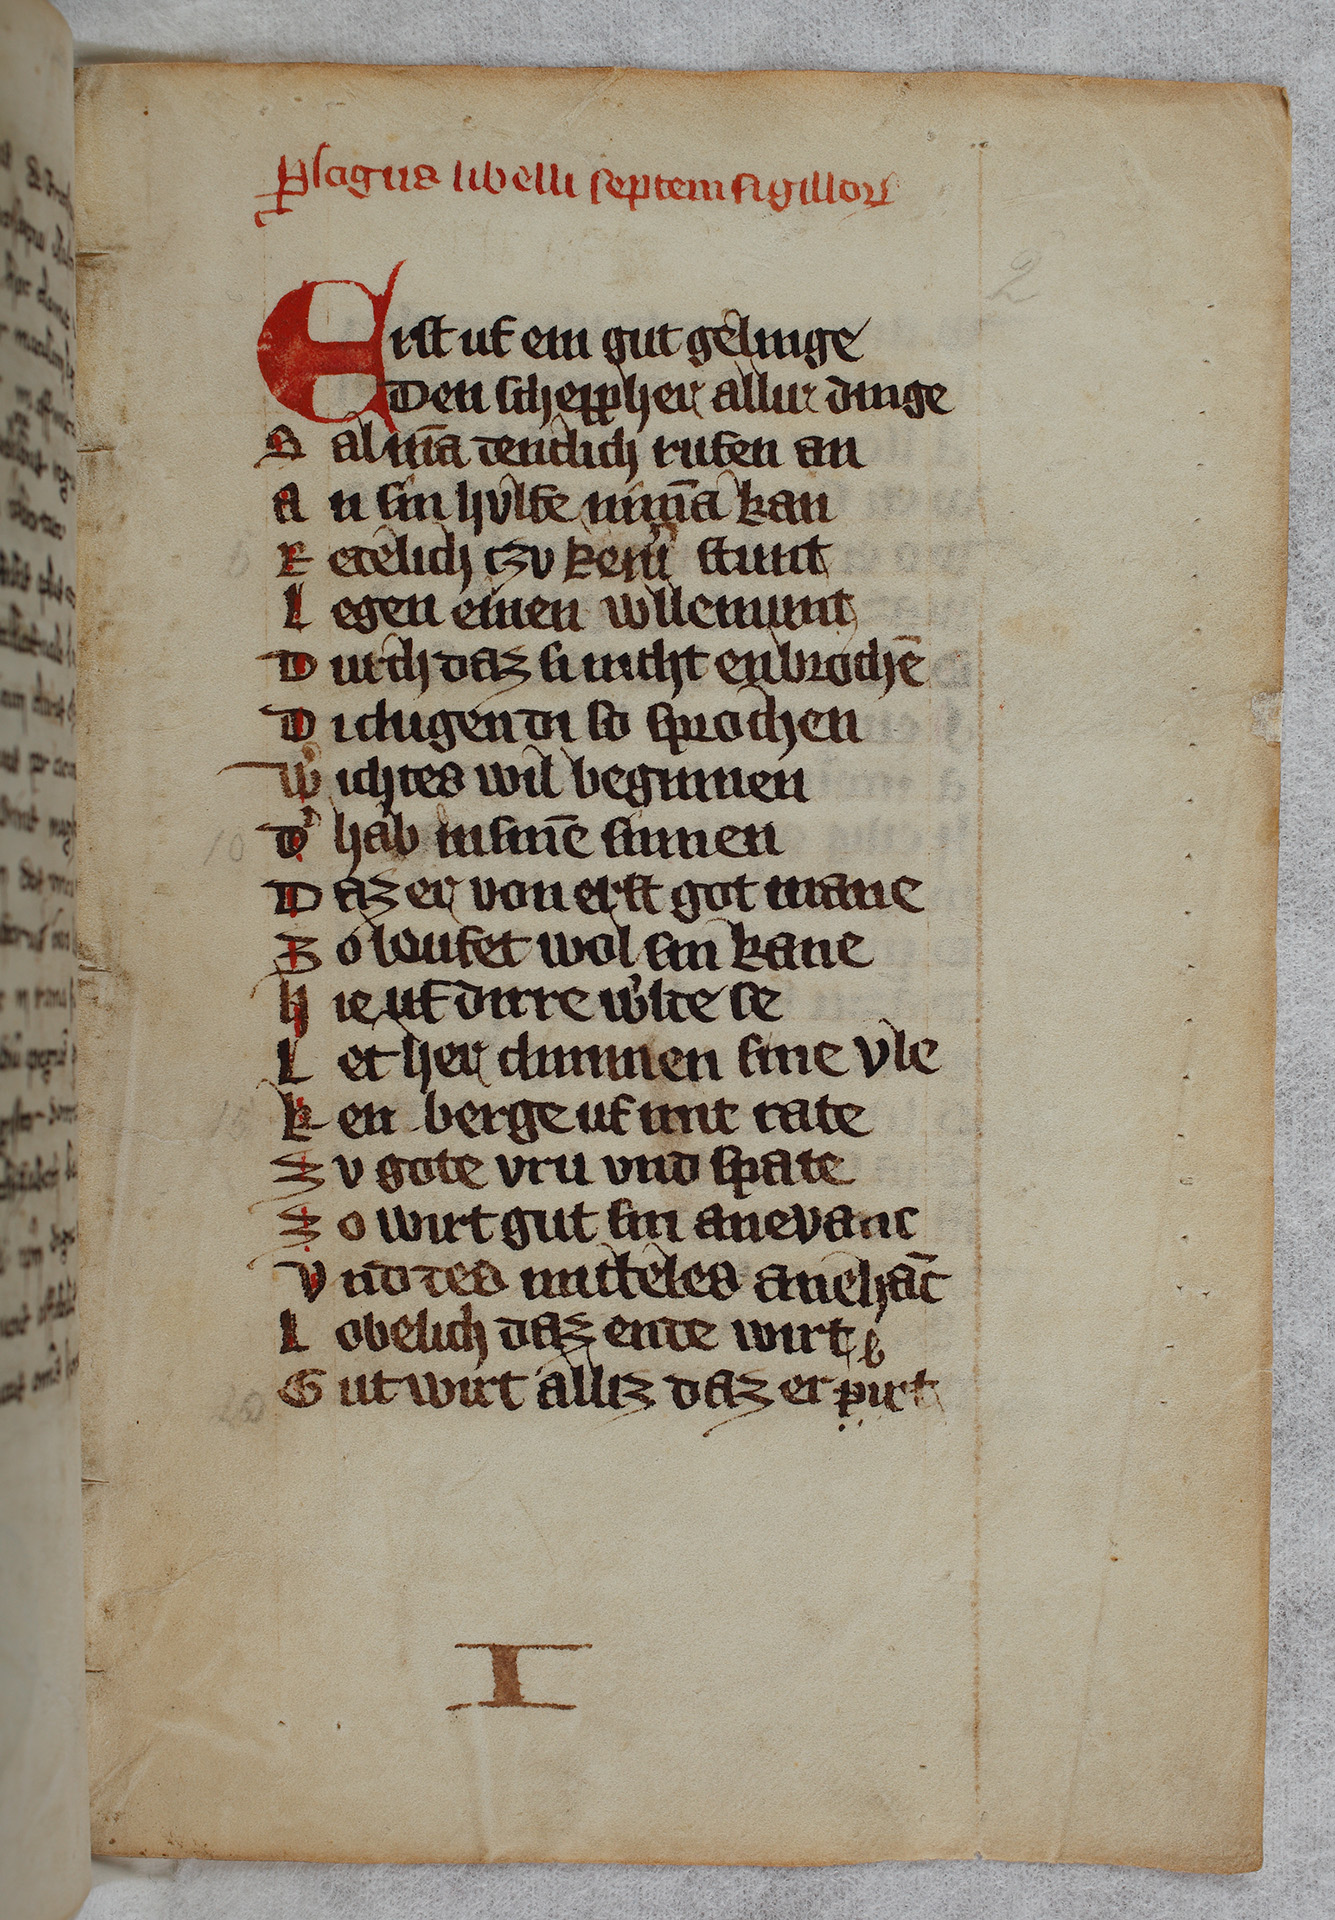 Plogus libelli septem sigillor
2
Erst uf ein gut gelinge
Den scheppher allur dinge
S al mā tendlich rufen an
A n sin hvlfe nimāͣ kan
R etelich czv kein͛ stunt
L egen einen wllemunt
D urch daz si nicht enbrochē
D i clugen di so sprochen
W͛ ichtes wil beginnen
D͛ hab in sinē sinnen
10
D az er von erst got mane
Z o loufet wol sin kane
H ie uf dirre w͛lte se
L et her dunnen sine vle
K en berge uf mit rate
15
Z v gote vru vnd spate
Z o wirt gut sin anevanc
V nd des mitteles anehāc
L obelich daz ende wirt
G ut wirt alliz daz er pirt
b
20
I